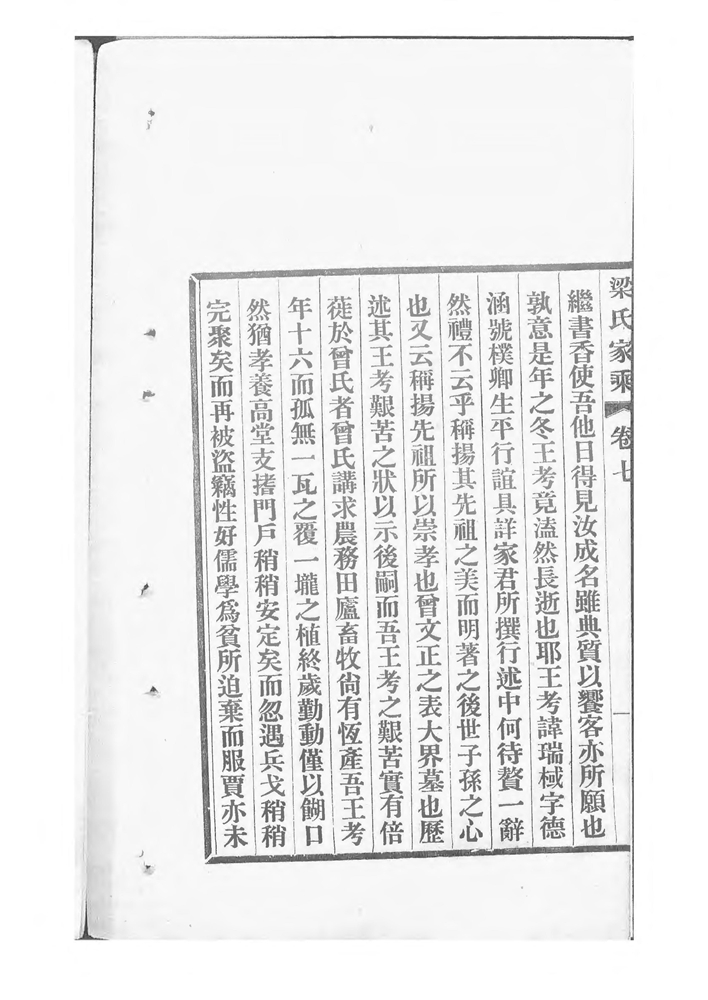 梁氏家乘 卷七 一
繼書香使吾他日得見汝成名雖典質以饗客亦所願也
孰意是年之冬王考竟溘然長逝也耶王考諱瑞棫字德
涵號樸卿生平行誼具詳家君所撰行述中何待贅一辭
然禮不云乎稱揚其先祖之美而明著之後世子孫之心
也又云稱揚先祖所以崇孝也曾文正之表大界墓也歷
述其王考艱苦之狀以示後嗣而吾王考之艱苦實有倍
蓰於曾氏者曾氏講求農務田廬畜牧尙有恆產吾王考
年十六而孤無一瓦之覆一壠之植終歲勤動僅以餬口
然猶孝養高堂支撐門戶稍稍安定矣而忽遇兵戈稍稍
完聚矣而再被盜竊性好儒學爲貧所迫棄而服賈亦未